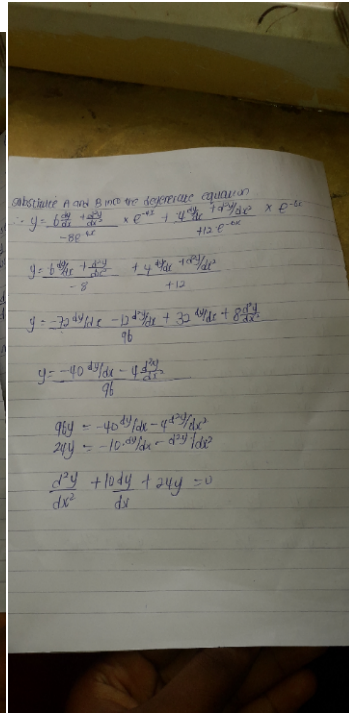 Substitute A and B into the differential equation
∴ y = (6 dy/dx + d²y/dx²)/(-8e^-4x) × e^-4x + (4 dy/dx + d²y/dx²)/(+12e^-6x) × e^-6x
y = (6 dy/dx + d²y/dx²)/(-8) + (4 dy/dx + d²y/dx²)/(+12)
y = (-72 dy/dx - 12 d²y/dx + 32 dy/dx + 8 d²y/dx²)/96
y = (-40 dy/dx - 4 d²y/dx²)/96
96y = -40 dy/dx - 4 d²y/dx²
24y = -10 dy/dx - d²y/dx²
d²y/dx² + 10 dy/dx + 24y = 0